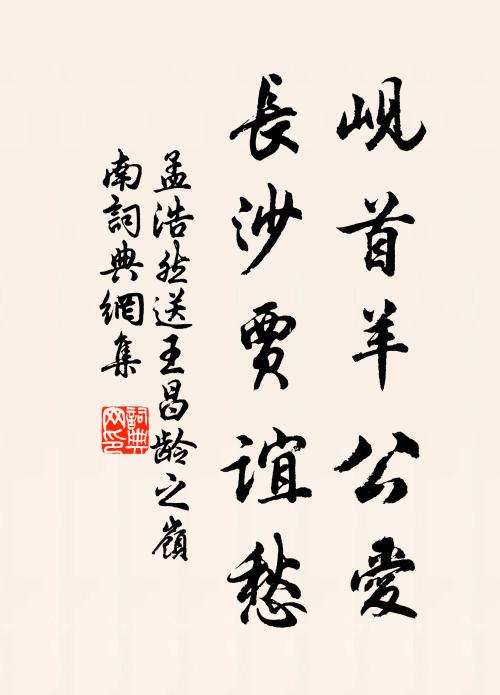 峴首羊公愛
長沙賈誼愁
孟浩然送王昌齡之嶺
南詞典網集
詞典
网印